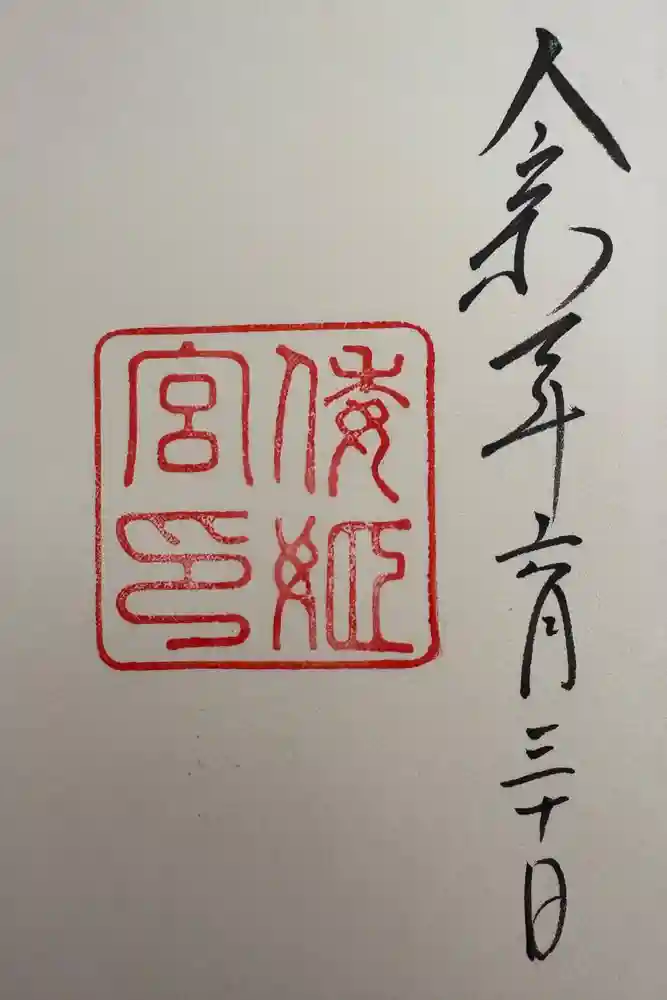 令和年六月三十日
倭姫
宮印